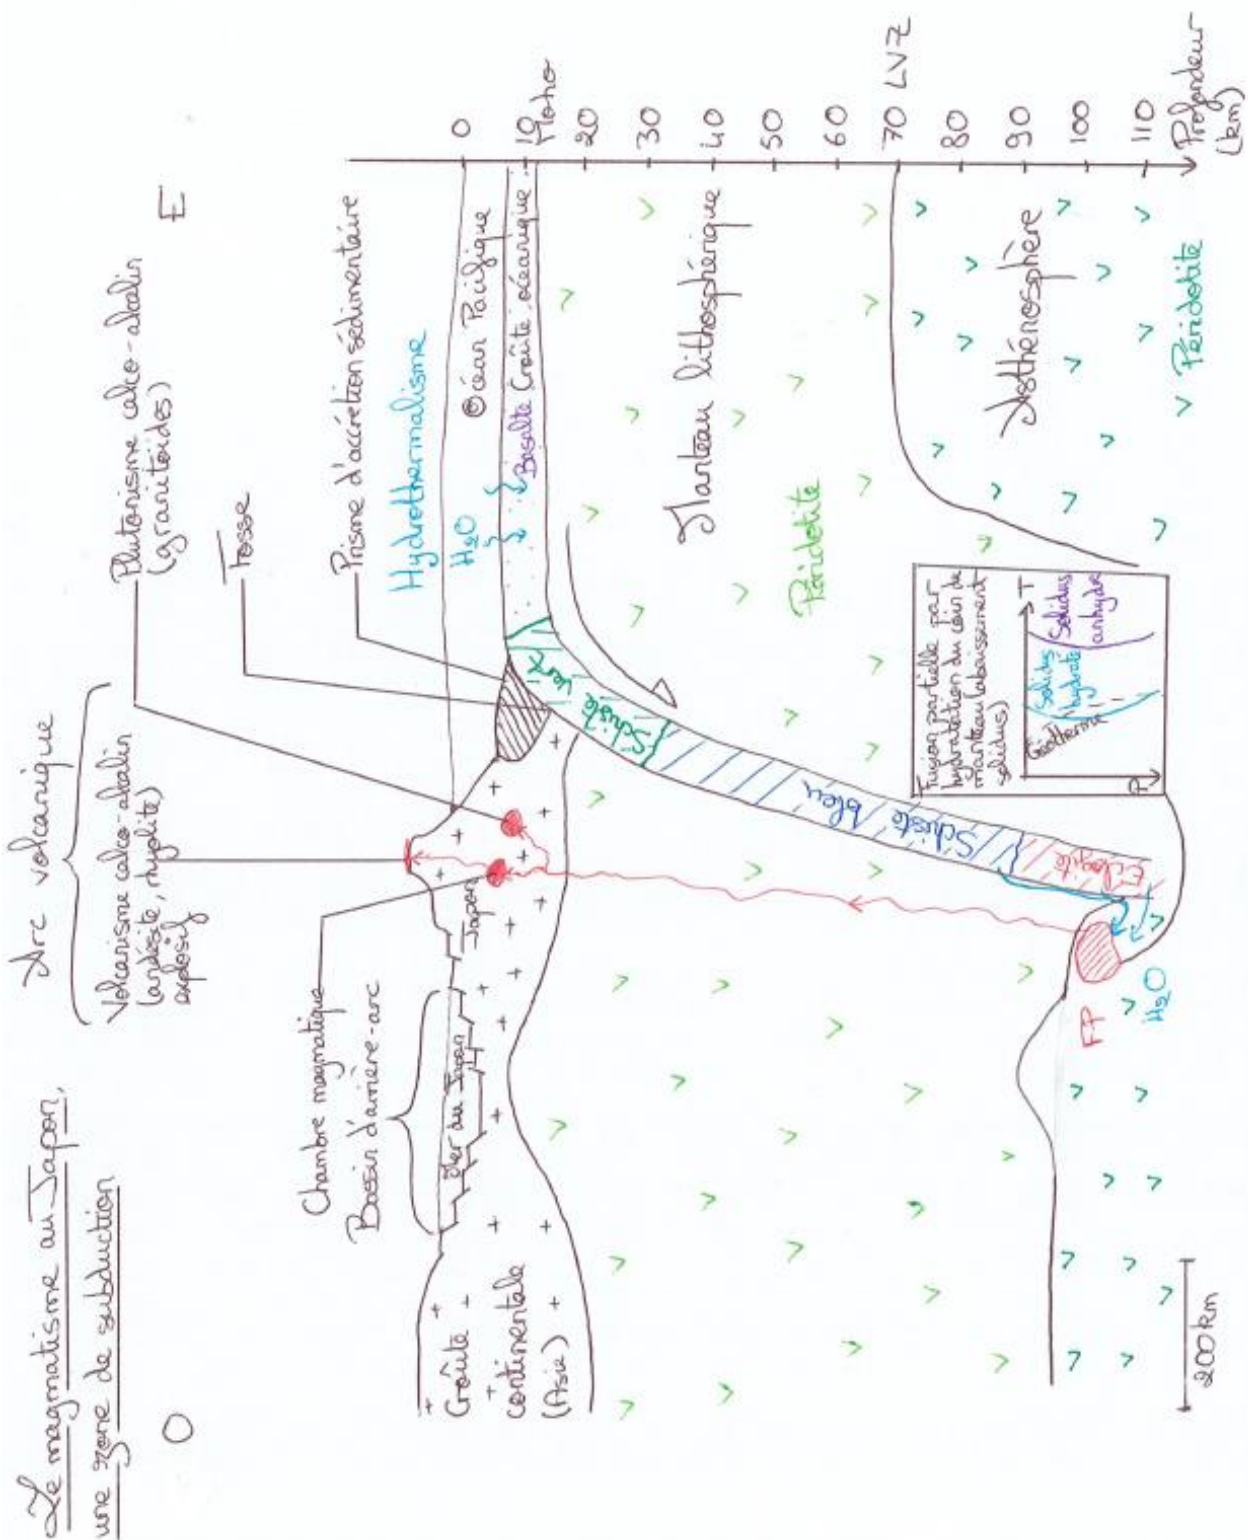 Le magmatisme au Japon,
une zone de subduction
O
E
Arc volcanique
Volcanisme calco-alcalin
(andésite, rhyolite)
explosif
Plutonisme calco-alcalin
(granitoïdes)
Fosse
Prisme d'accrétion sédimentaire
Hydrothermalisme
H₂O
Océan Pacifique
Basalte Croûte océanique
Chambre magmatique
Bassin d'arrière-arc
Mer du Japon
Japon
Croûte
continentale
(Asie)
Schiste vert
Schiste bleu
Eclogite
Manteau lithosphérique
Péridotite
Asthénosphère
Péridotite
FP
H₂O
Fusion partielle par
hydratation du coin de
manteau (abaissement
solidus)
T
P
Géotherme
Solidus
hydraté
Solidus
anhydre
0
10
Moho
20
30
40
50
60
70 LVZ
80
90
100
110
Profondeur
(km)
200km